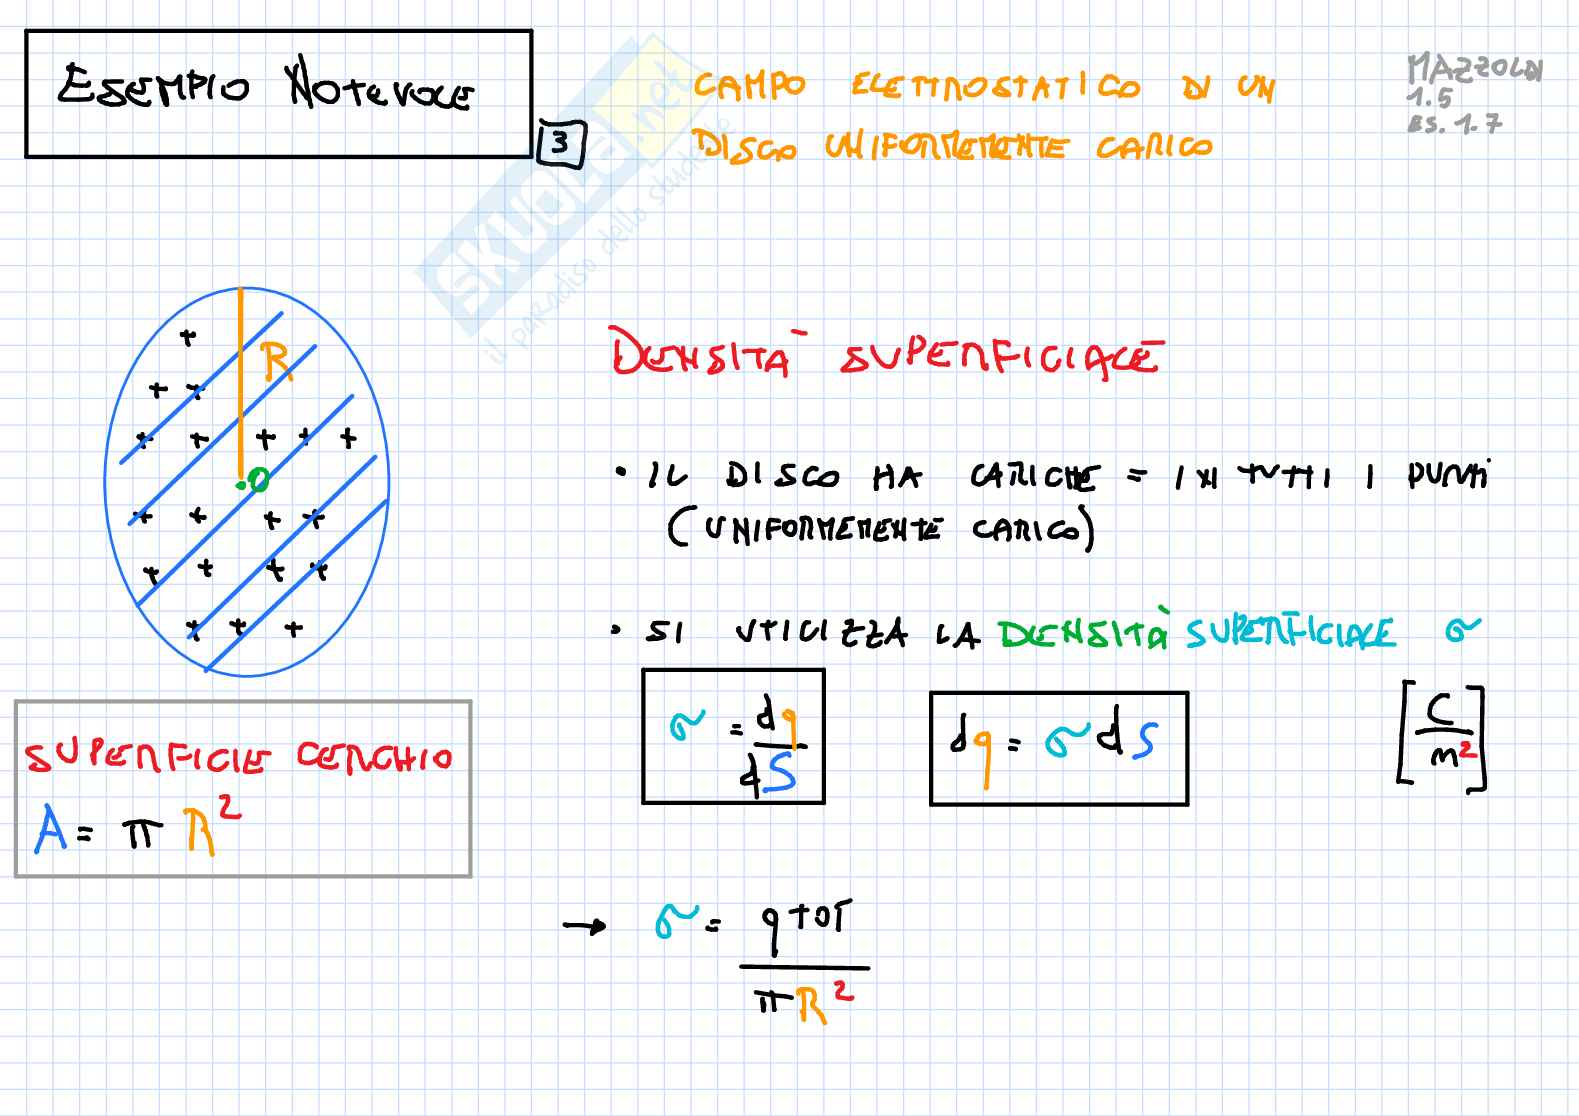 ESEMPIO NOTEVOLE
3
CAMPO ELETTROSTATICO DI UN
DISCO UNIFORMEMENTE CARICO
MAZZOLDI
1.5
ES. 1.7
SKUOLA.net
il paradiso dello studente
R
O
DENSITÀ SUPERFICIALE
• IL DISCO HA CARICHE = IN TUTTI I PUNTI
(UNIFORMEMENTE CARICO)
• SI UTILIZZA LA DENSITÀ SUPERFICIALE σ
σ = dq/dS
dq = σ dS
[C/m²]
SUPERFICIE CERCHIO
A = π R²
→ σ = qTOT/πR²